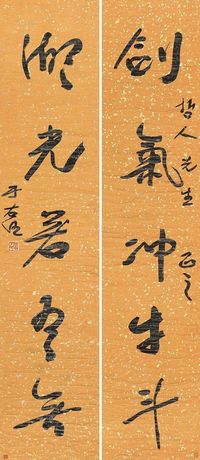 劍氣冲牛斗
哲人先生 正之
湖光若有無
于右任